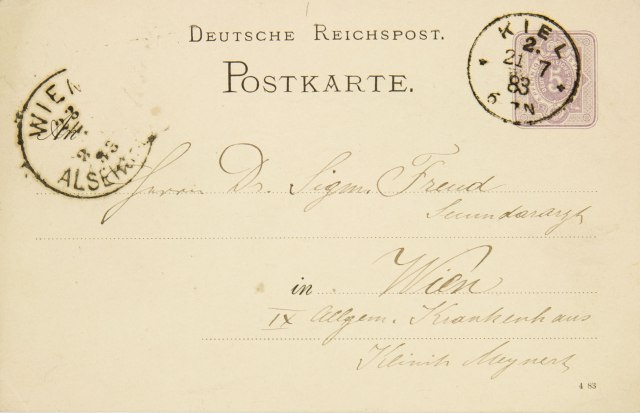 DEUTSCHE REICHSPOST.
POSTKARTE.
KIEL
2.
21 7
83
6-7N
WIEN
ALSER
An
Herrn Dr. Sigm. Freud
Secundararzt
in Wien
IX Allgem. Krankenhaus
Klinik Meynert
4 83